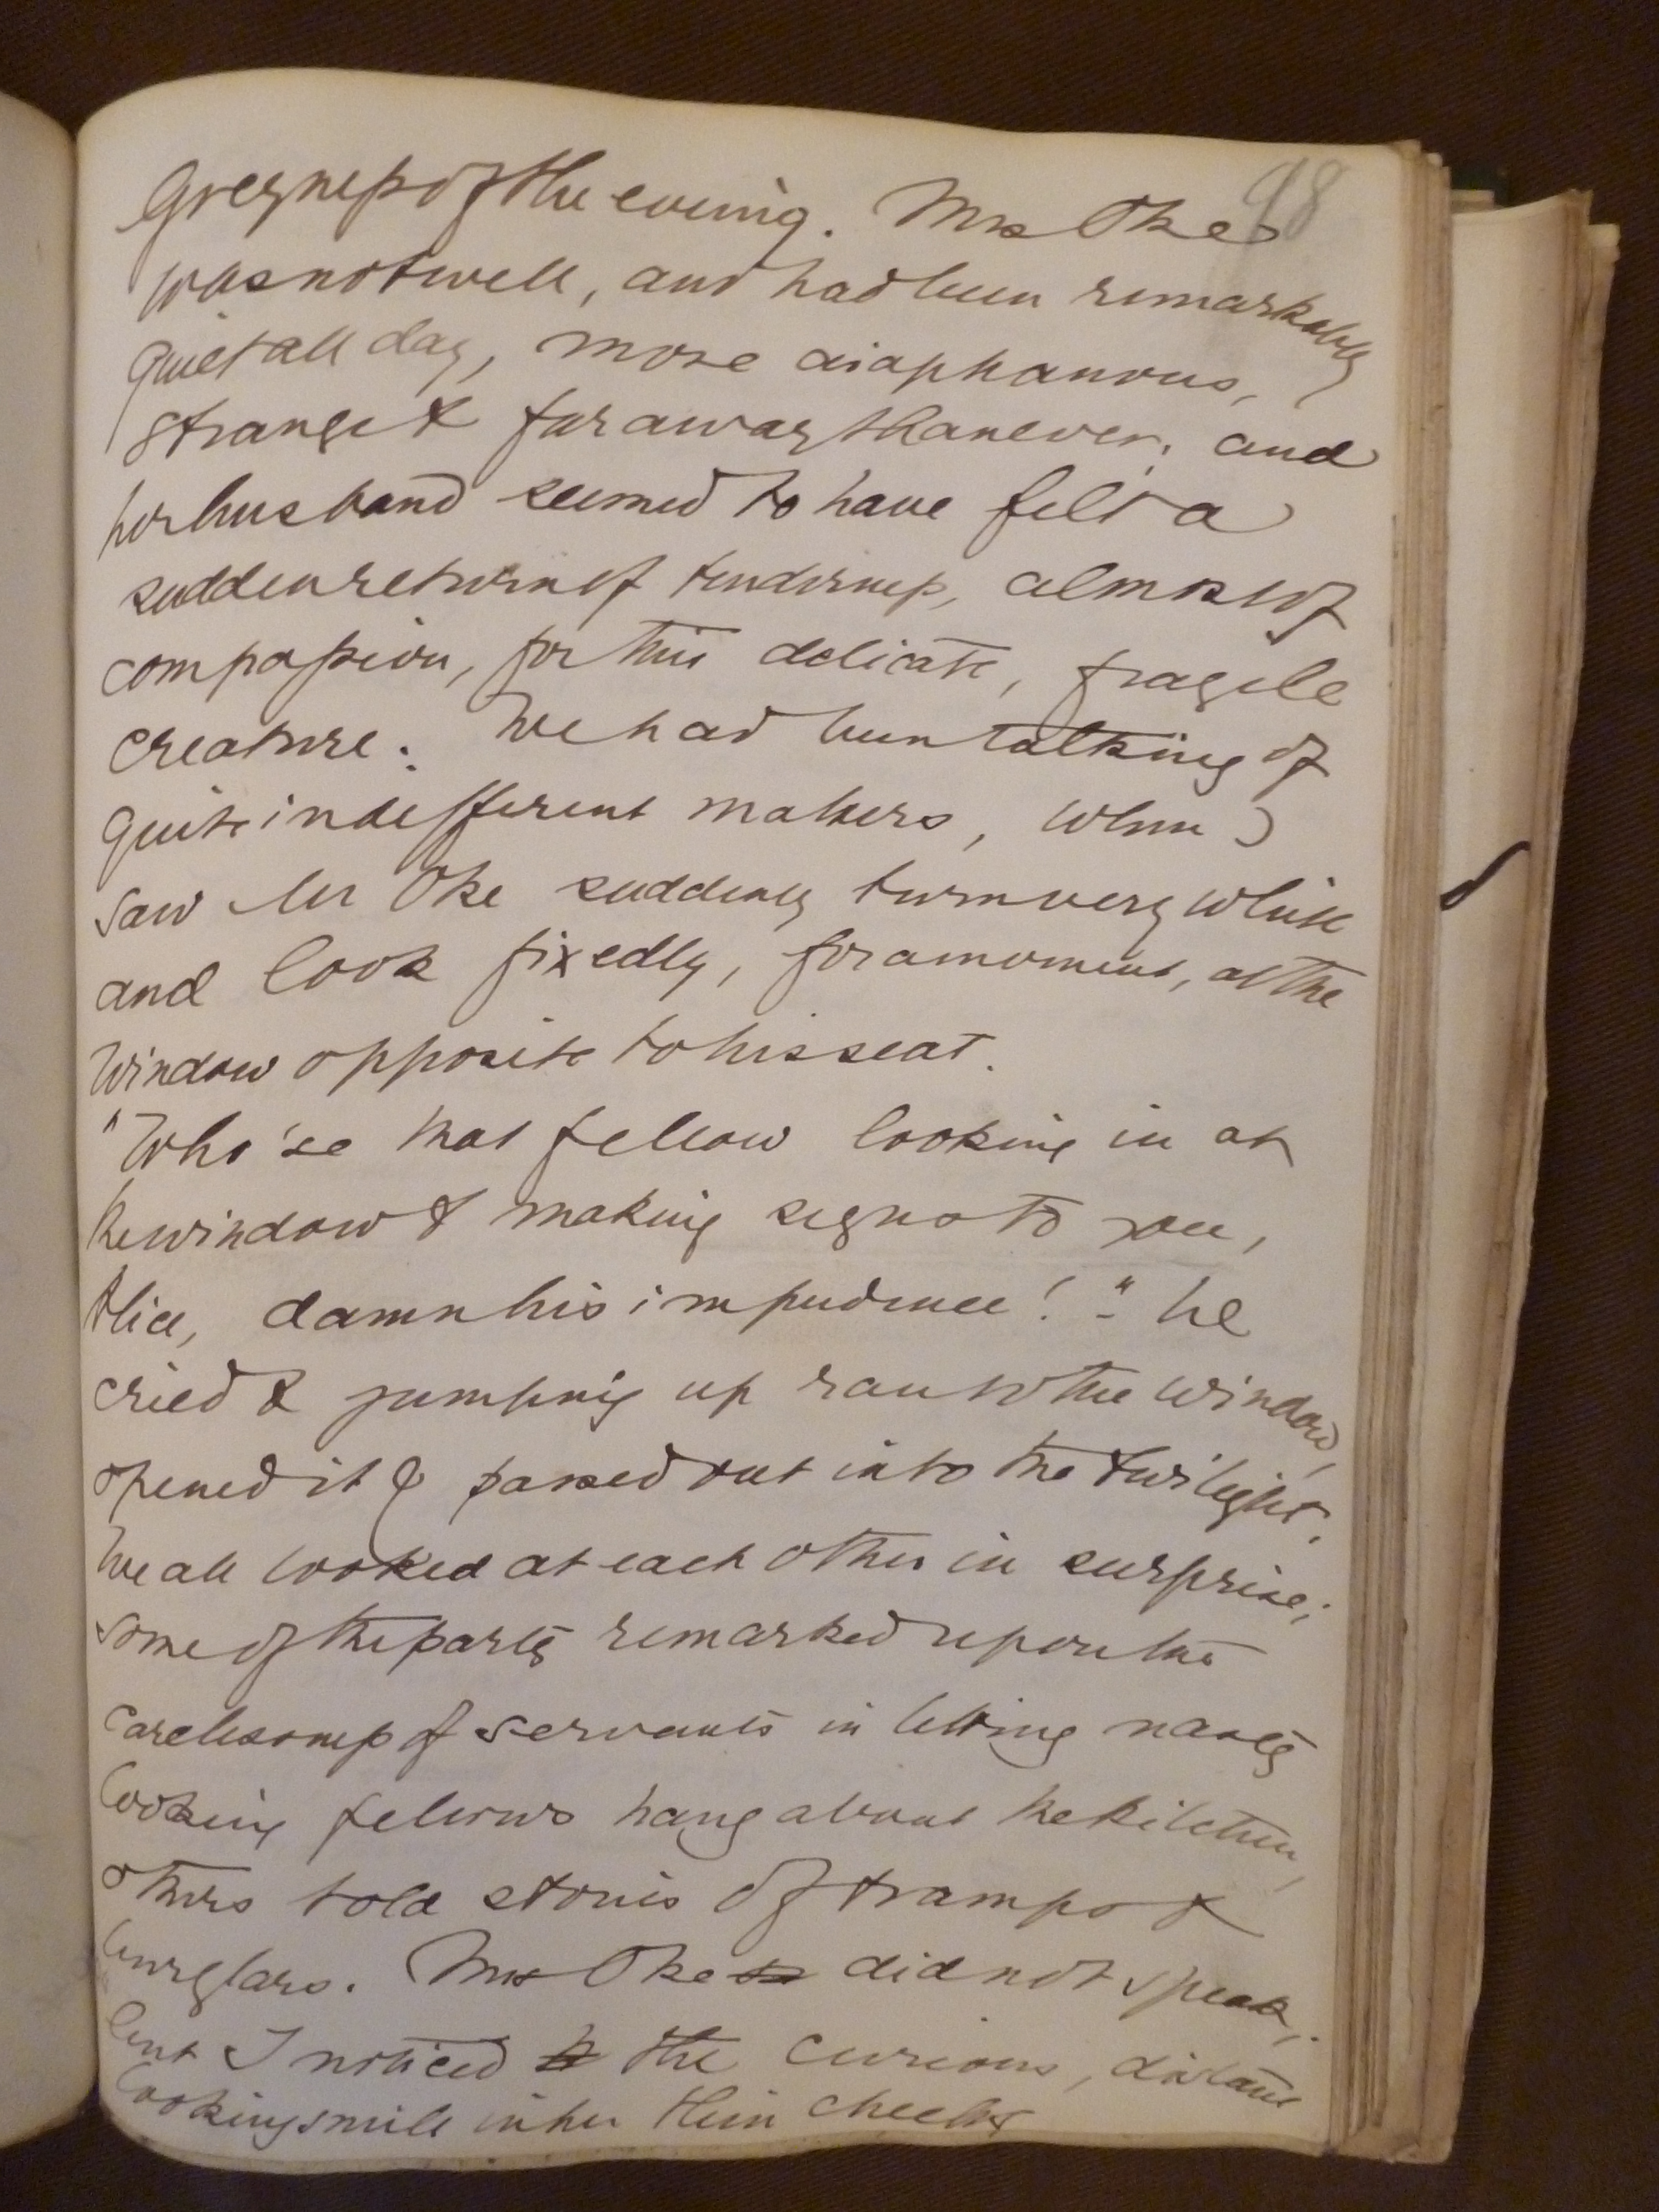 98
Greyness of the evening. Mrs Oke
was not well, and had been remarkably
quiet all day, more diaphanous,
strange & far away than ever; and
her husband seemed to have felt a
sudden return of tenderness, almost of
compassion, for this delicate, fragile
creature. We had been talking of
quite indifferent matters, when I
saw Mr Oke suddenly turn very white
and look fixedly, for a moment, at the
window opposite to his seat.
"Who 'se that fellow looking in at
the window & making signs to you,
Alice, damn his impudence! "- he
cried & jumping up ran to the window,
opened it & passed out into the twilight.
We all looked at each other in surprise;
some of the party remarked upon the
carelessness of servants in letting nasty
looking fellows hang about the kitchen,
others told stories of tramps &
burglars. Mrs Oke did not speak;
but I noticed the curious, distant
looking smile in her thin cheeks